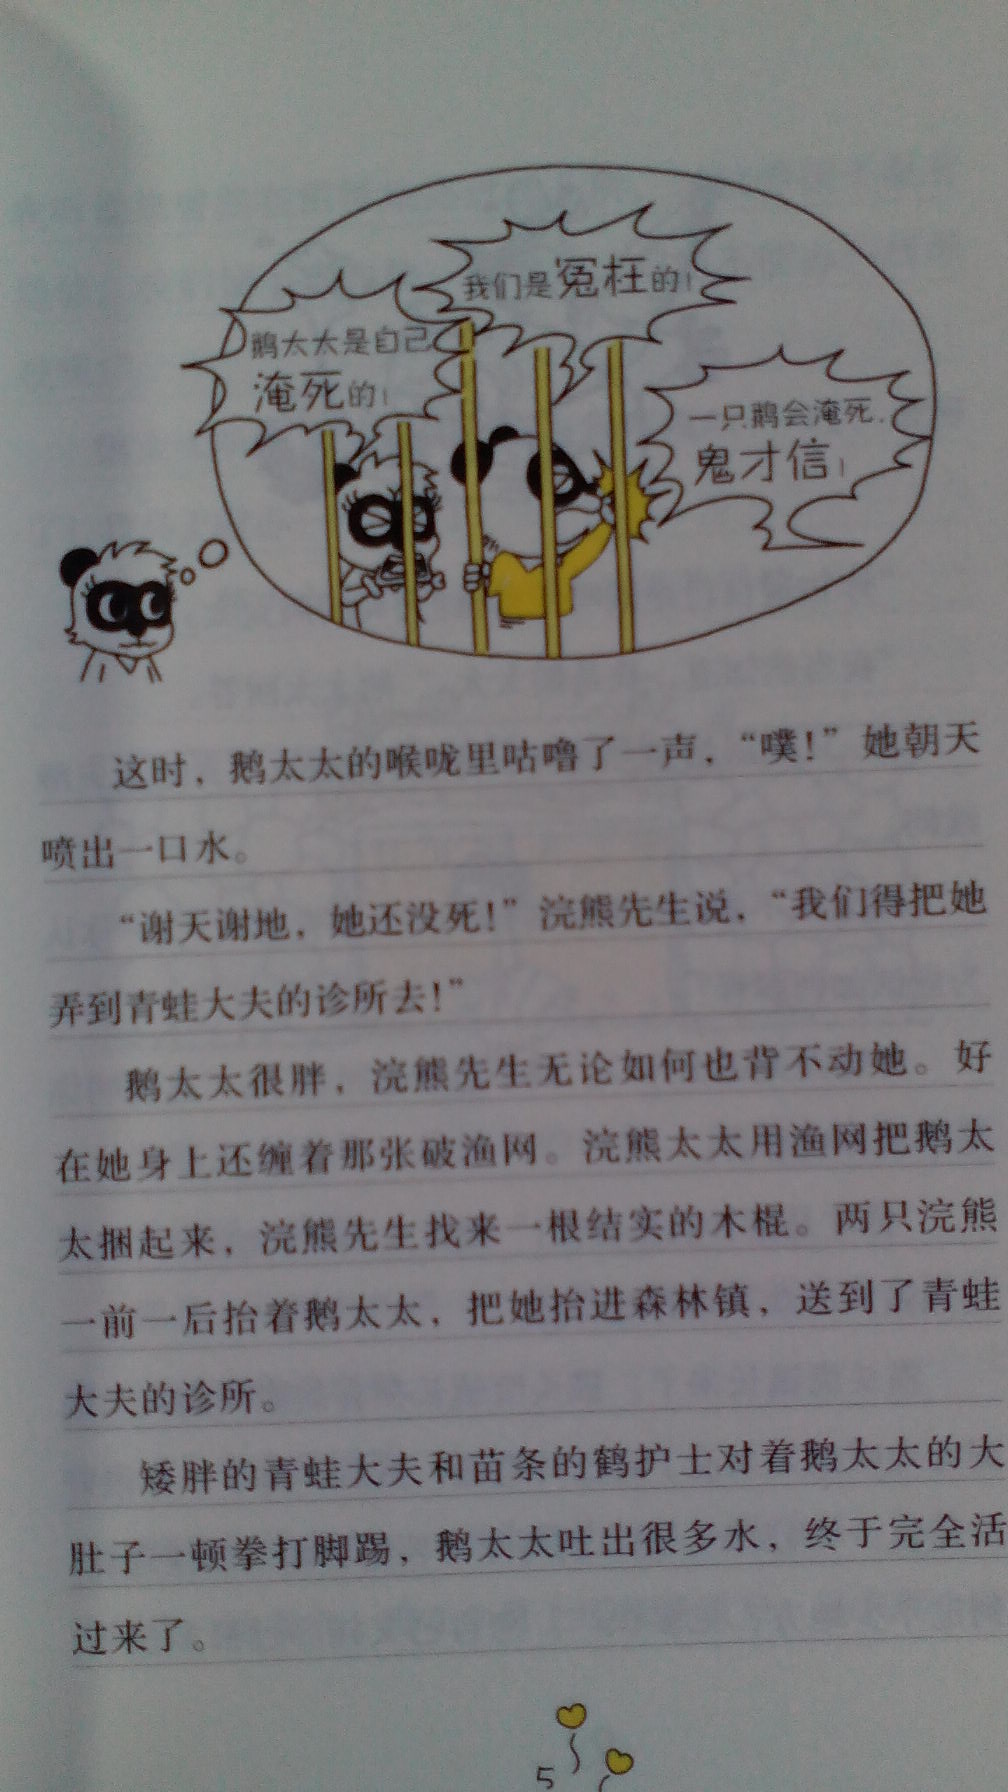 我们是冤枉的！
鹅太太是自己
淹死的！
一只鹅会淹死，
鬼才信！
这时，鹅太太的喉咙里咕噜了一声，“噗！”她朝天
喷出一口水。
“谢天谢地，她还没死！”浣熊先生说，“我们得把她
弄到青蛙大夫的诊所去！”
鹅太太很胖，浣熊先生无论如何也背不动她。好
在她身上还缠着那张破渔网。浣熊太太用渔网把鹅太
太捆起来，浣熊先生找来一根结实的木棍。两只浣熊
一前一后抬着鹅太太，把她抬进森林镇，送到了青蛙
大夫的诊所。
矮胖的青蛙大夫和苗条的鹤护士对着鹅太太的大
肚子一顿拳打脚踢，鹅太太吐出很多水，终于完全活
过来了。
5